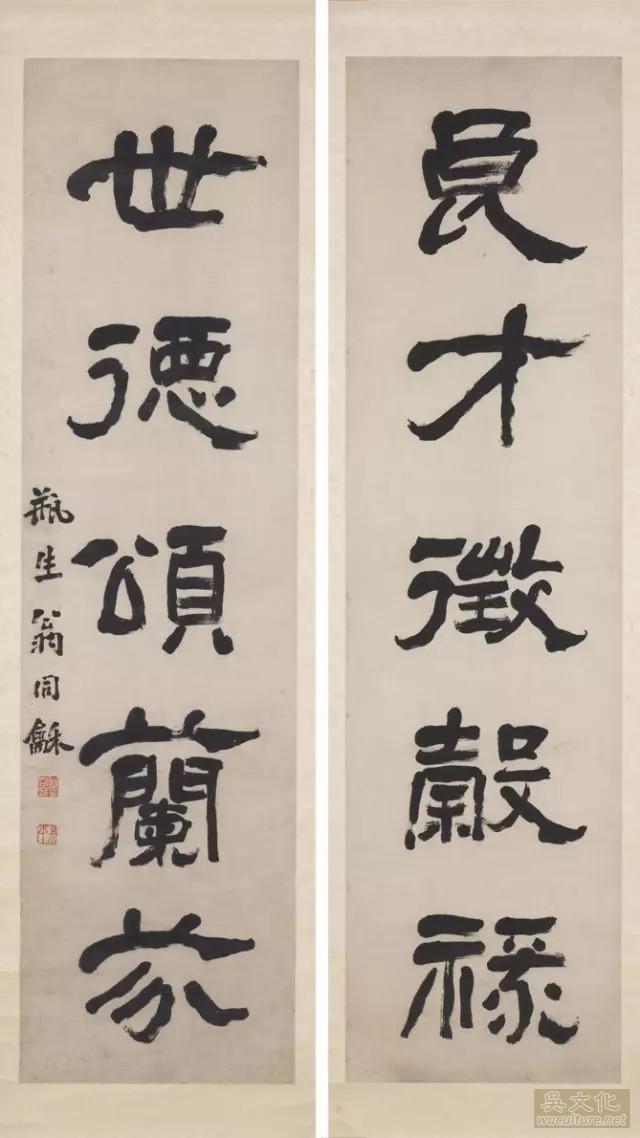 良才徵穀祿
世德頌蘭芬
瓶生翁同龢
吳文化
www.wuculture.net